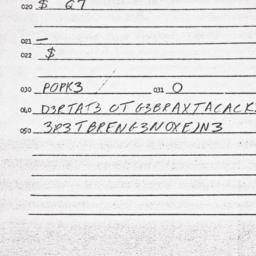 020 $ G7
021 —
022 $
030 POPK3 031 O
040 D3PTAT3 UTG3BPAXTACACK
050 3P3TBPENG3NOXEJN3